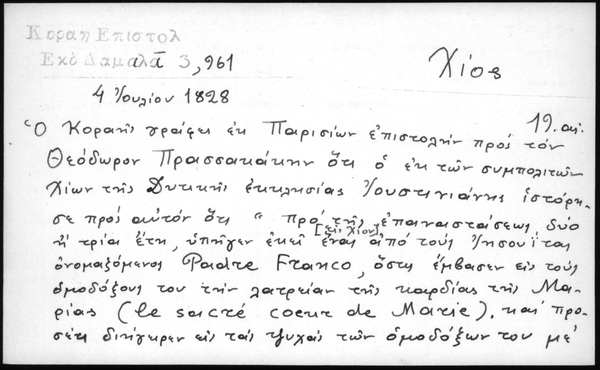 Κοραη Επιστολ
Εκδ Δαμαλᾶ 3, 961
Χίος
4 Ἰουλίου 1828
19. αἰ.
Ὁ Κοραῆς γράφει ἐκ Παρισίων ἐπιστολὴν πρὸς τὸν
Θεόδωρον Πρασσακάκην ὅτι ὁ ἐκ τῶν συμπολιτῶν
Χίων τῆς Δυτικῆς ἐκκλησίας Ἰουστινιάνης ἱστόρη-
σε πρὸς αὐτὸν ὅτι " πρὸ τῆς ἐπαναστάσεως δύο
ἢ τρία ἔτη, ὑπῆγεν ἐκεῖ [εἰς Χίον] ἕνας ἀπὸ τοὺς Ἰησουΐτας
ὀνομαζόμενος Padre Franco, ὅστις ἔμβασεν εἰς τοὺς
ὁμοδόξους του τὴν λατρείαν τῆς καρδίας τῆς Μα-
ρίας (le sacré coeur de Marie). καὶ προ-
σέτι διήγειρεν εἰς τὰς ψυχὰς τῶν ὁμοδόξων του μέ